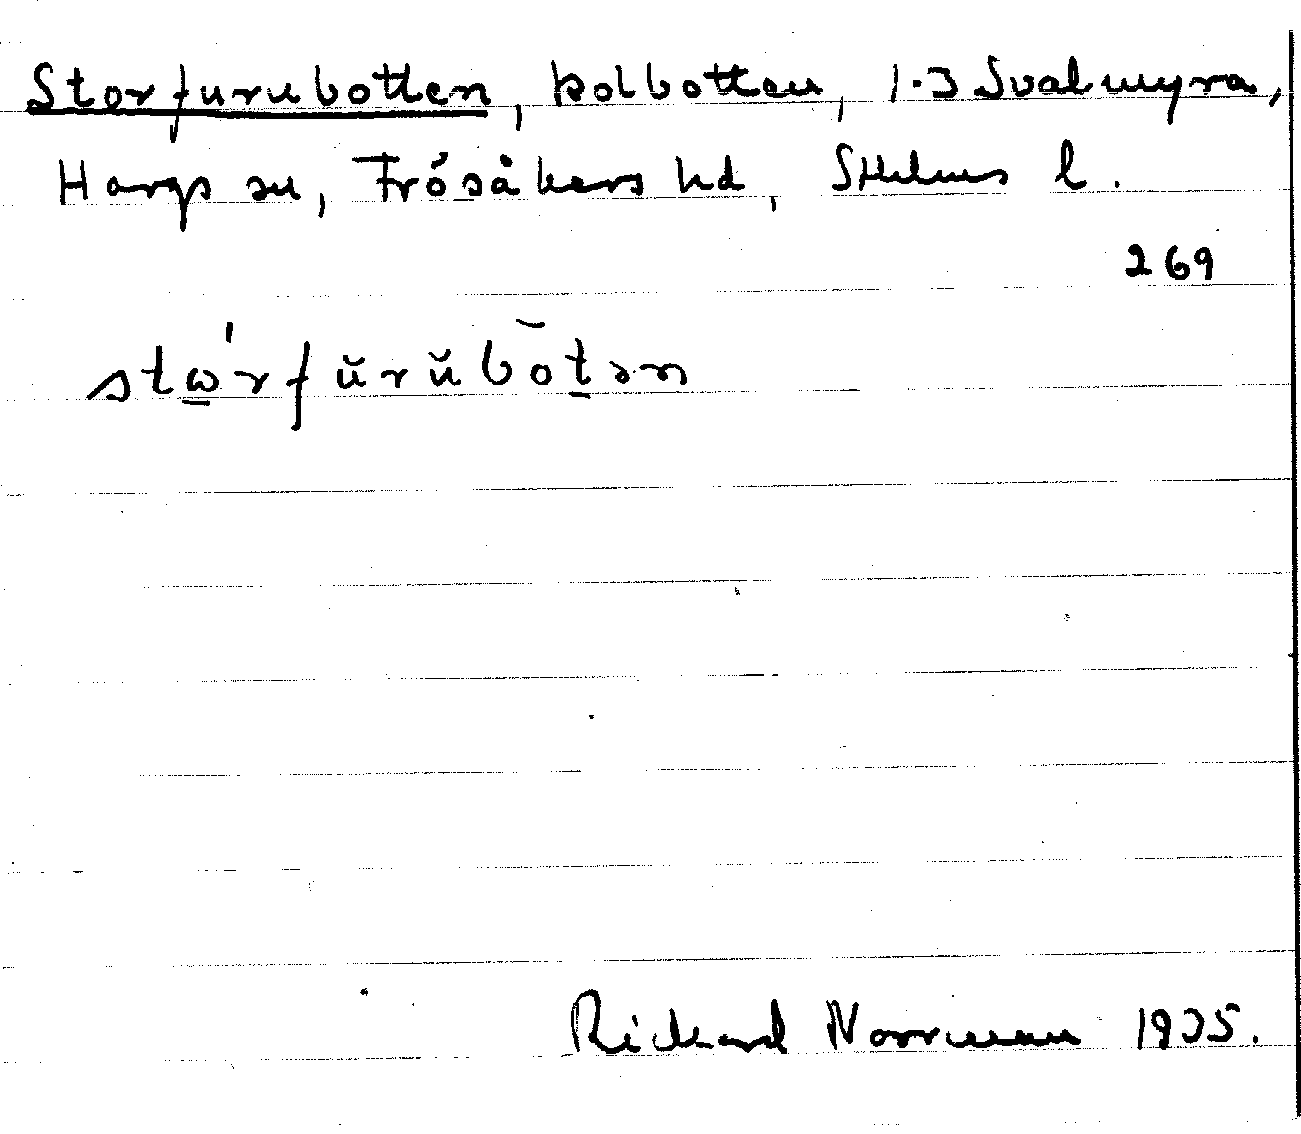 Storfurubotten, kolbotten, 1.3 Svalmyra,
Hargs sn, Frösåkers hd, Sthlms l.
269
stώ̲rfŭrŭbo̅t̲ən
Richard Norrman 1935.